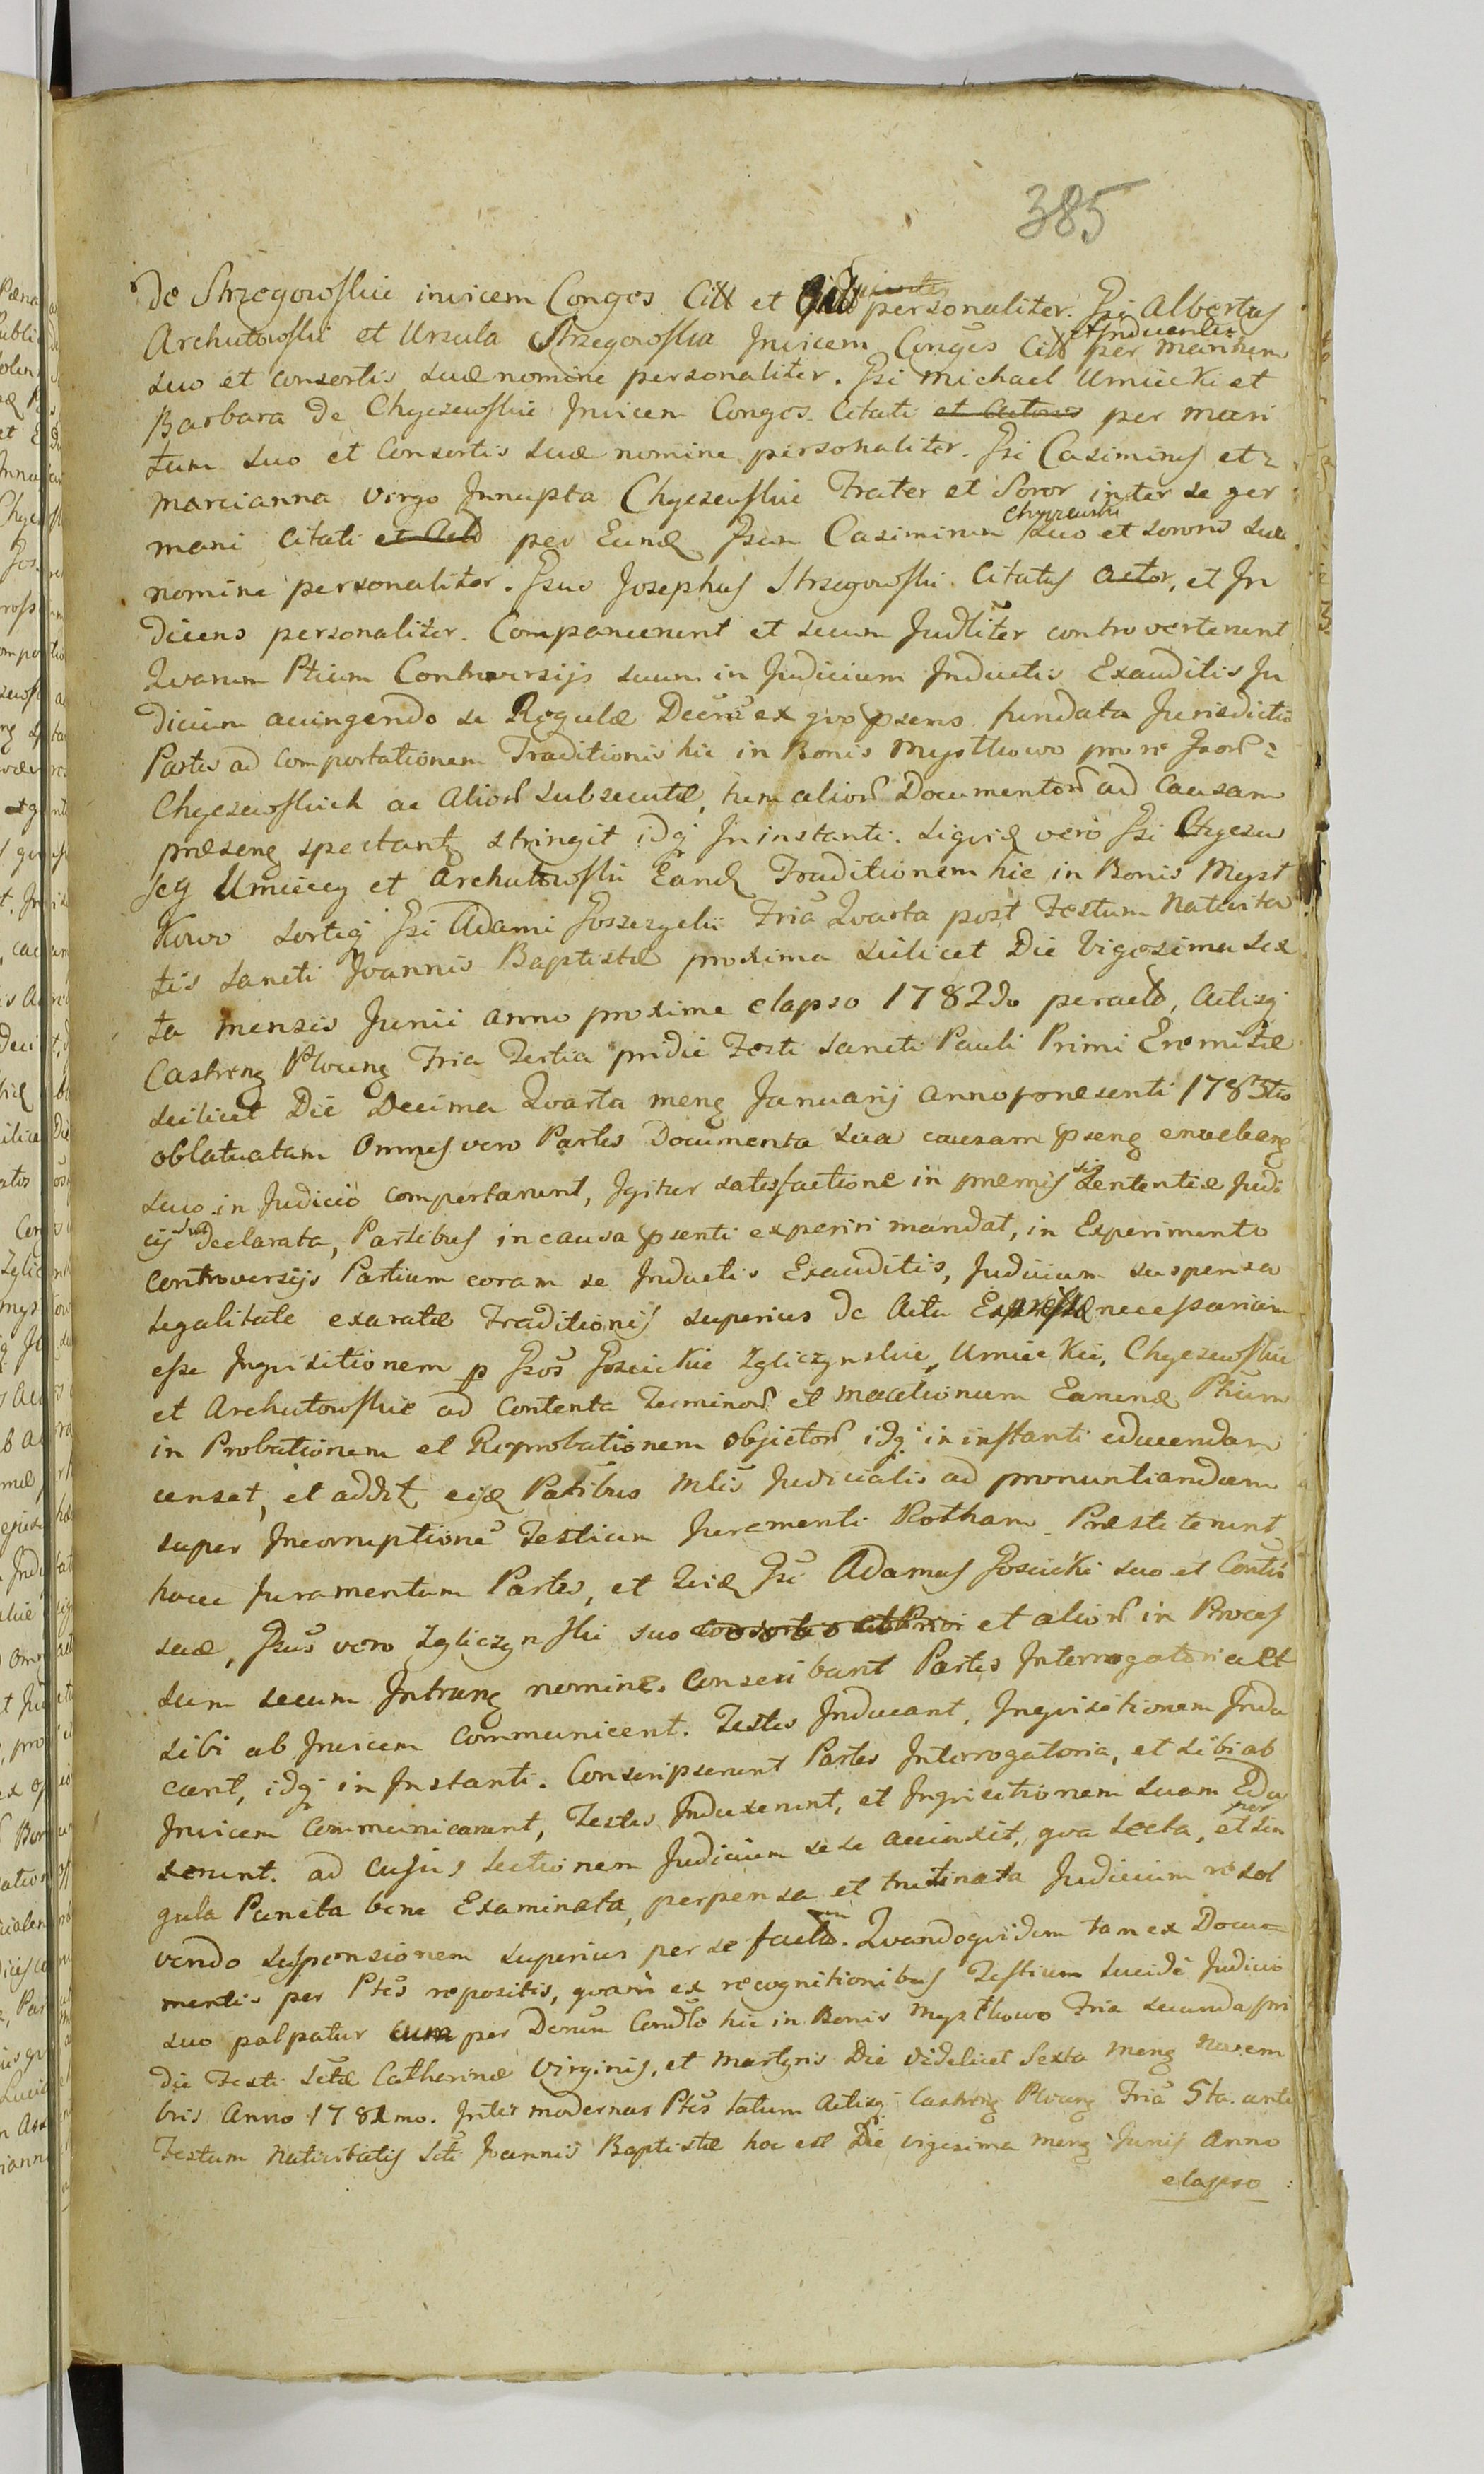 385
De Strzegowskie invicem Conges Citt et personaliter. Gsi Albertus
Archutowski et Ursula Strzegowska Invicem Conges Citt et Inducentes per maritum
suo et consortis suæ nomine personaliter. Gsi Michael Umiecki et
Barbara de Chyczewskie Invicem Conges Citati et Actores per mari
tum suo et Consortis suæ nomine personaliter. Gsi Casimirus et
Marcianna Virgo Innupta Chyczewskie Frater et Soror inter se ger
mani Citati et Act per Eund Gsum Casimirum Chyczewski suo et sororis suæ
nomine personaliter. Gsus Josephus Strzegowski Citatus Actor, et In
ducens personaliter. Comparuerunt et secum Judltter controverterunt
Quarum Ptium Controversijs suum in Judicium Inductis Exauditis Ju
dicium accingendo se Regulæ Decrti ex quo psens fundata Jurisdictio
Partes ad comportationem Traditionis hic in Bonis Mystkowo pro re Gsor
Chyczewskich ac Alior subsecutæ, tum alior Documentor ad Causam
præseng spectantg stringit idq In instanti. Siquid vero Gsi Chyczew
scy Umieccy et Archutowski Eand Traditionem hic in Bonis Myst
kowo sortig Gsi Adami Goszczycki Fria Quarta post Festum Nativita
tis Sancti Joannis Baptistæ proxima scilicet Die Vigesima sex
ta mensis Junii anno proxime elapso 1782do peracto, Actisq
Castreng Ploceng Fria Tertia pridie Festi Sancti Pauli Primi Eremitæ
scilicet Die Decima Quarta meng Januarij anno præsenti 1783tio
oblatuatam Omnes vero Partes Documenta sua causam pseng enuclearg
suo in Judicio comportarunt, Igitur satisfactione in præmissis Sententiæ Judi
cij sui declarata, Partibus in causa psenti experiri mandat, in Experimento
controversijs Partium coram se Inductis Exauditis, Judicium suspensa
legalitate exaratæ Traditionis superius de Actu Expressæ necessariam
esse Inquisitionem p Gsos Gosicckie Zgliczynskie, Umieckie, Chyczewskie
et Archutowskie ad Contenta Terminor et mactionum Earund Ptium
in Probationem et Reprobationem objector idq in instanti educendam
censet, et addit eisd Patibus Mlis Judicialis ad pronuntiandam
super Incorruptione Testium Juramenti Rotham. Præstiterunt
hocce Juramentum Partes, et Quid Gsi Adamus Gosicki suo et Contis
suæ, Gsus vero Zgliczynski suo et alior in Proces
sum secum Intrang nomine. Conscribant Partes Interrogatoria et
sibi ab Invicem communicent. Testes Inducant, Inquisitionem Indu
cant, idq in Instanti. Conscripserunt Partes Interrogatoria, et sibi ab
Invicem communicarunt, Testes Induxerunt, et Inquisitionem suam Edu
xerunt. ad cujus lectionem Judicium sese accinxit, qua lecta, et per sin
gula Puncta bene Examinata, perpensa et trutinata Judicium resol
vendo suspensionem superius per se factam. Quandoquidem tam ex Docu
mentis per Ptes repositis, quam ex recognitionibus Testium lucide Judicio
suo palpatur cum per Derum Cendlo hic in Bonis Mystkowo Fria secunda pri
die Festi Sctæ Catharinæ Virginis, et Martyris Die videlicet Sexta meng Novem
bris Anno 1781mo. Inter modernas Ptes latum Actisq Castreng Plocang Fria 5ta ante
Festum Nativitatis Scti Joannis Baptistæ hoc est Die vigesima meng Junij Anno
elapso